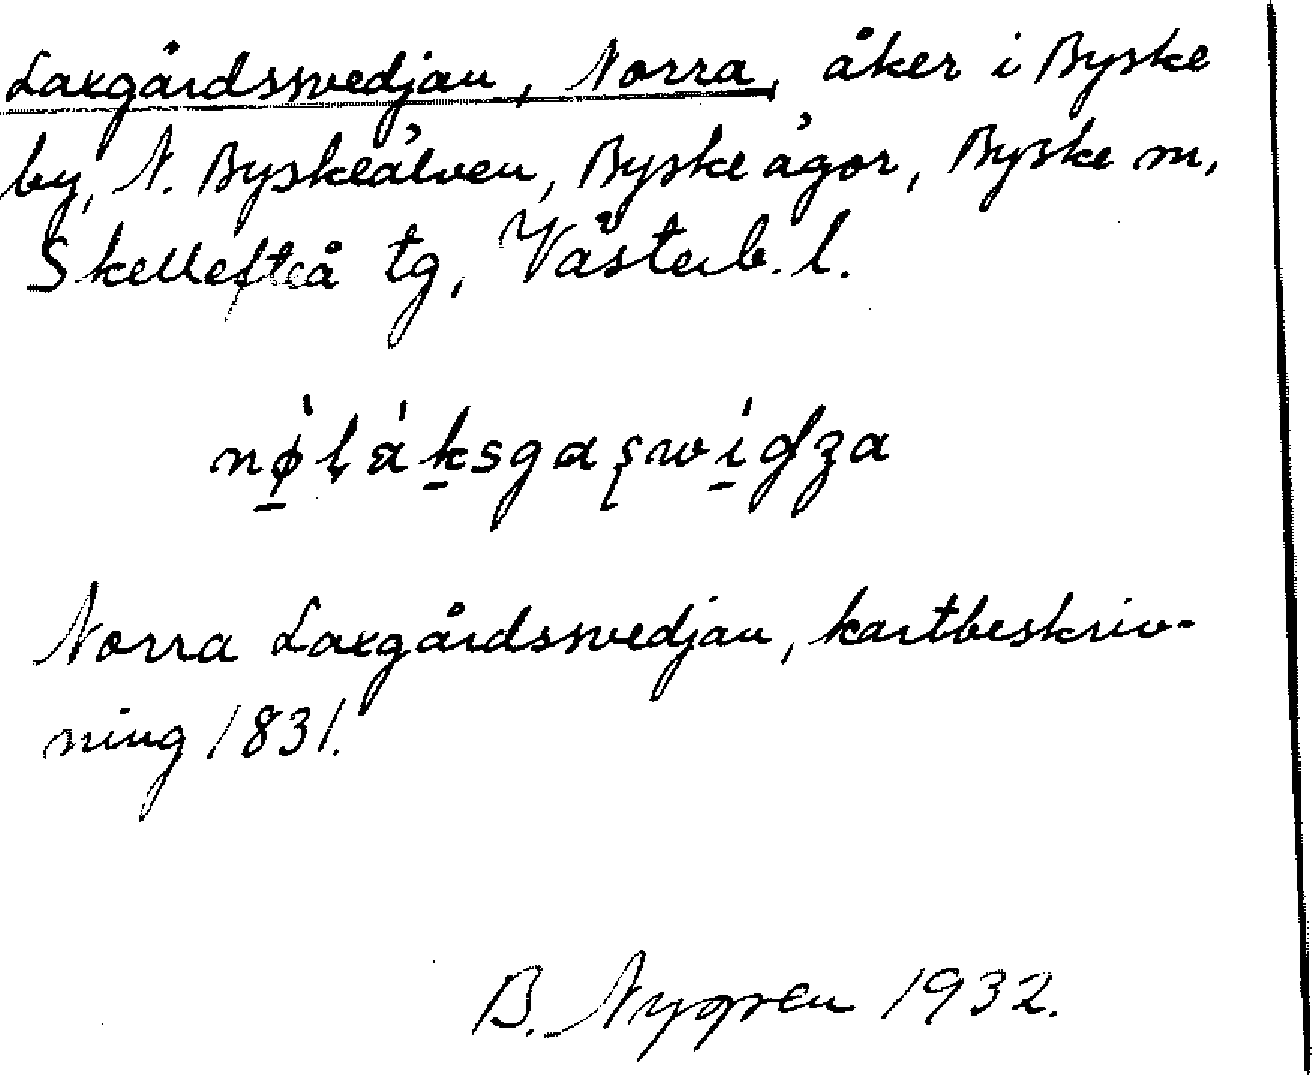 Laxgårdssvedjan, Norra, åker i Byske
by, N. Byskeälven, Byske ägor, Byske sn,
Skellefteå tg, Västerb. l.
Norra Laxgårdssvedjan, kartbeskriv-
ning 1831.
B. Nygren 1932.